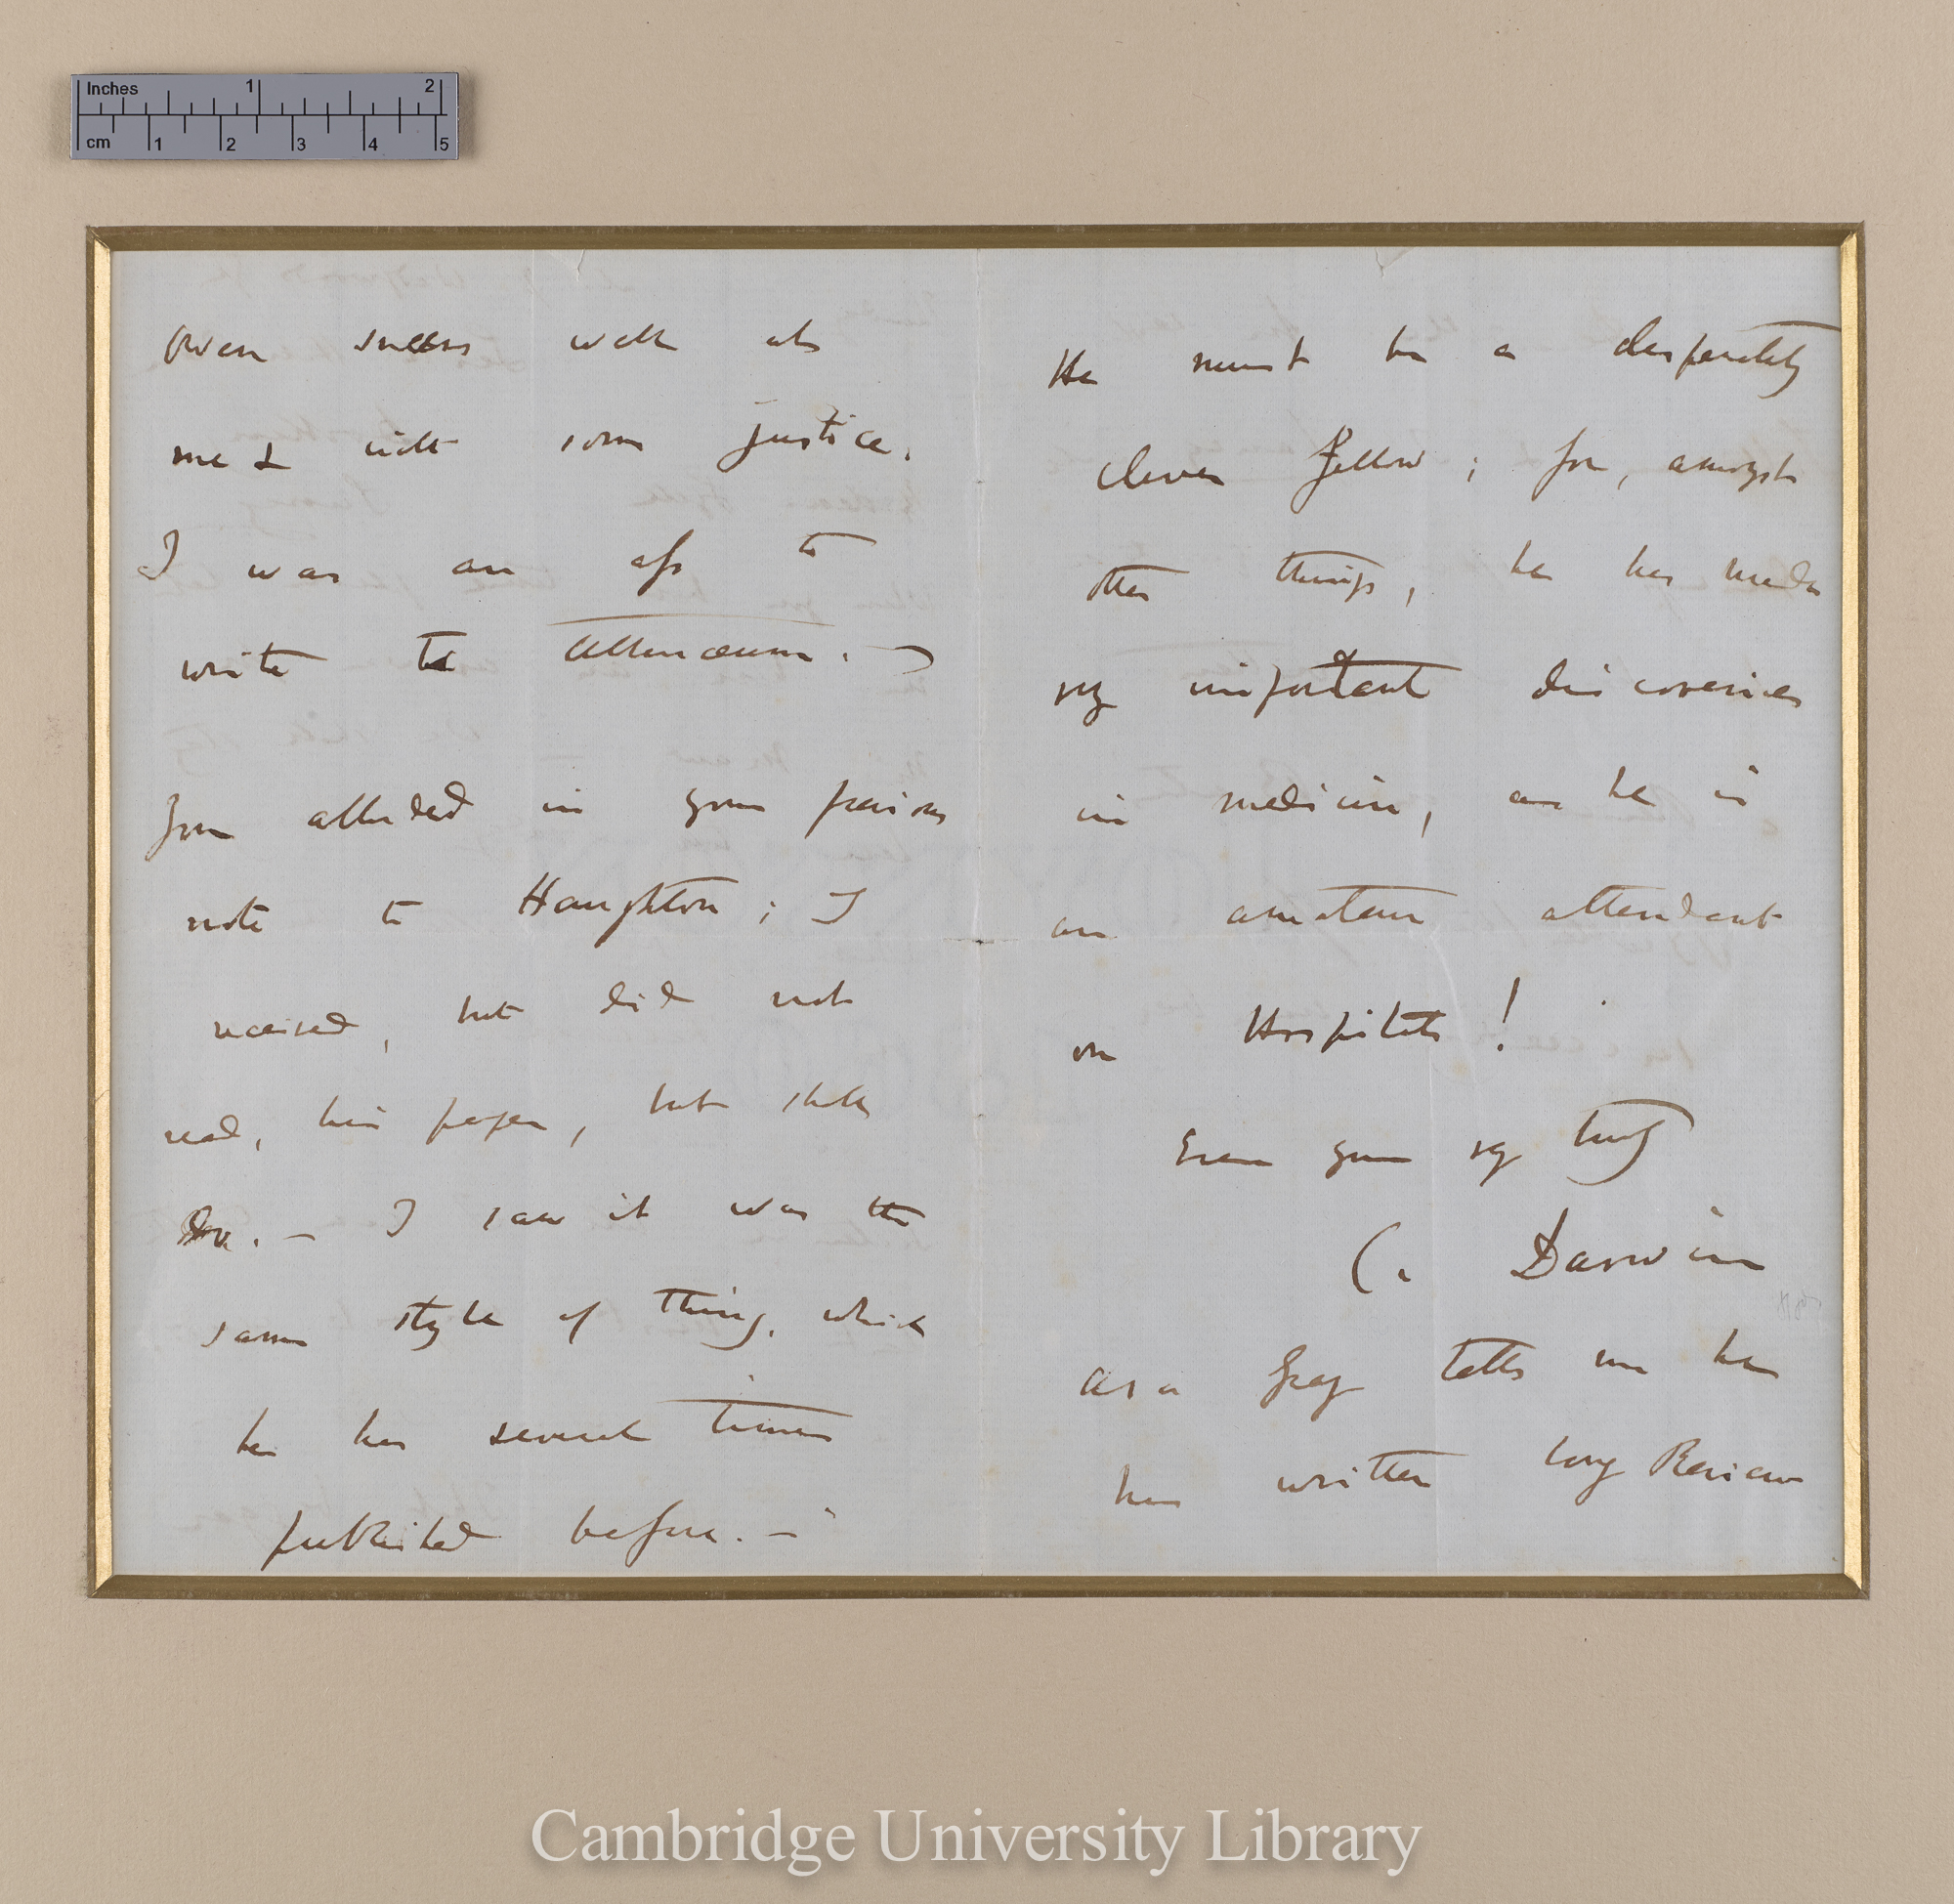 Inches 1 2
cm 1 2 3 4 5
Owen sneers well at
me & with some justice.
I was an ass to
write to Athenæum. —
You alluded in your previous
note to Haughton; I
received, but did not
read, his paper, but shall
do. — I saw it was the
same style of thing, which
he has several times
published before. —
He must be a desperately
clever fellow; for, amongst
other things, he has made
very important discoveries
in medicine, as he is
an amateur attendant
on Hospitals!
Ever yours very truly
C. Darwin
Asa Gray tells me he
has written long Review
Cambridge University Library